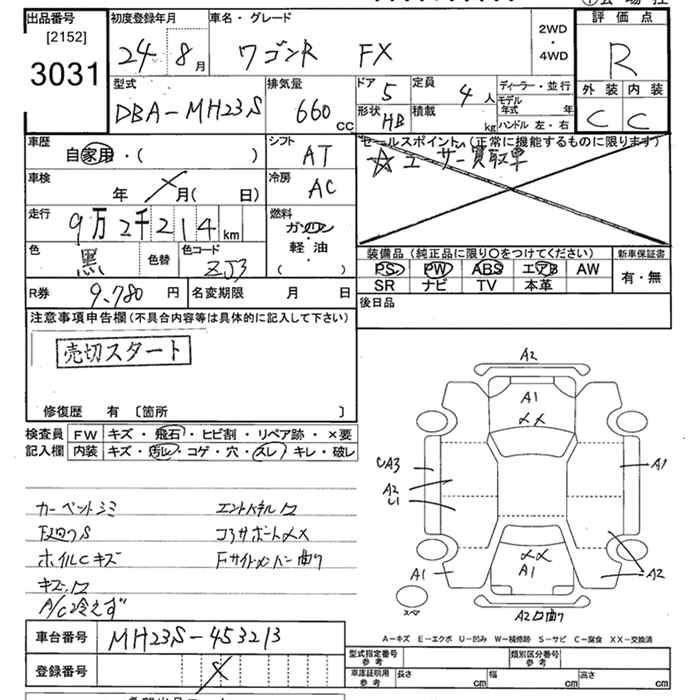 出品番号
[2152]
3031
初度登録年月
24年 8月
車名・グレード
ワゴンR FX
2WD
・
4WD
評価点
R
外装 内装
C C
型式
DBA-MH23S
排気量
660 CC
ドア
5
形状
HB
定員
4人
積載
kg
ディーラー・並行
モデル年式 年
ハンドル 左・右
車歴
自家用・( )
シフト
AT
セールスポイント(正常に機能するものに限ります)
☆ユーザー買取車
車検
年 月( 日)
冷房
AC
走行
9万2千214km
燃料
ガソリン
軽・油
( )
色
黒
色替
色コード
ZJ3
装備品(純正品に限り○をつけてください)
新車保証書
PS PW ABS エアB AW
SR ナビ TV 本革
有・無
R券 9,780円
名変期限 月 日
後日品
注意事項申告欄(不具合内容等は具体的に記入して下さい)
売切スタート
修復歴 有 〔箇所 〕
検査員 FW キズ・飛石・ヒビ割・リペア跡・×要
記入欄 内装 キズ・汚レ・コゲ・穴・スレ・キレ・破レ
カーペットシミ
エントパネルワ
コアサポートXX
ホイルCキズ
Fサイドメンバー曲り
A/C冷えず
A2
A1
XX
UA3
A2
U1
A1
XX
A1
A1
A2
スペア
A2ワ曲り
A-キズ E-エクボ U-凹み W-補修跡 S-サビ C-腐食 XX-交換済
車台番号 MH23S-453213
登録番号
型式指定番号
参考
類別区分番号
参考
車庫証明用
参考
長さ cm 幅 cm 高さ cm